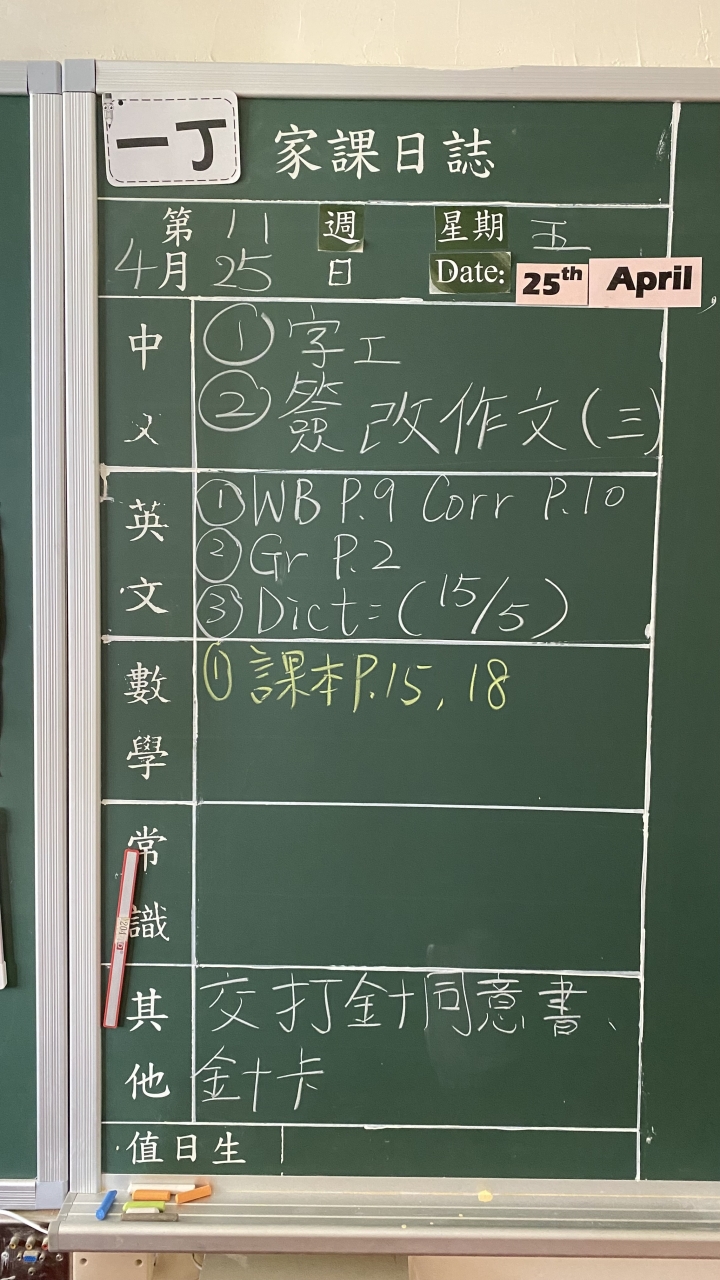 一丁
家課日誌
第 11 週 星期 五
4月 25 日 Date: 25th April
中文
① 字工
② 簽改作文(三)
英文
① WB P.9 Corr P.10
② Gr P.2
③ Dict= (15/5)
數學
① 課本P.15, 18
常識
其他
交打針同意書、
針卡
值日生